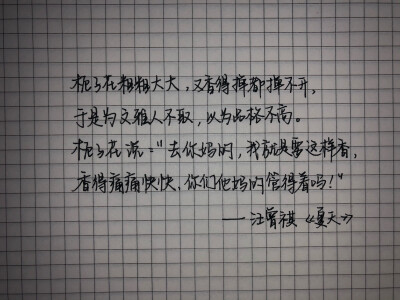 栀子花粗粗大大，又香得掸都掸不开，
于是为文雅人不取，以为品格不高。
栀子花说："去你妈的，我就是要这样香，
香得痛痛快快，你们他妈的管得着吗！"
——汪曾祺《夏天》